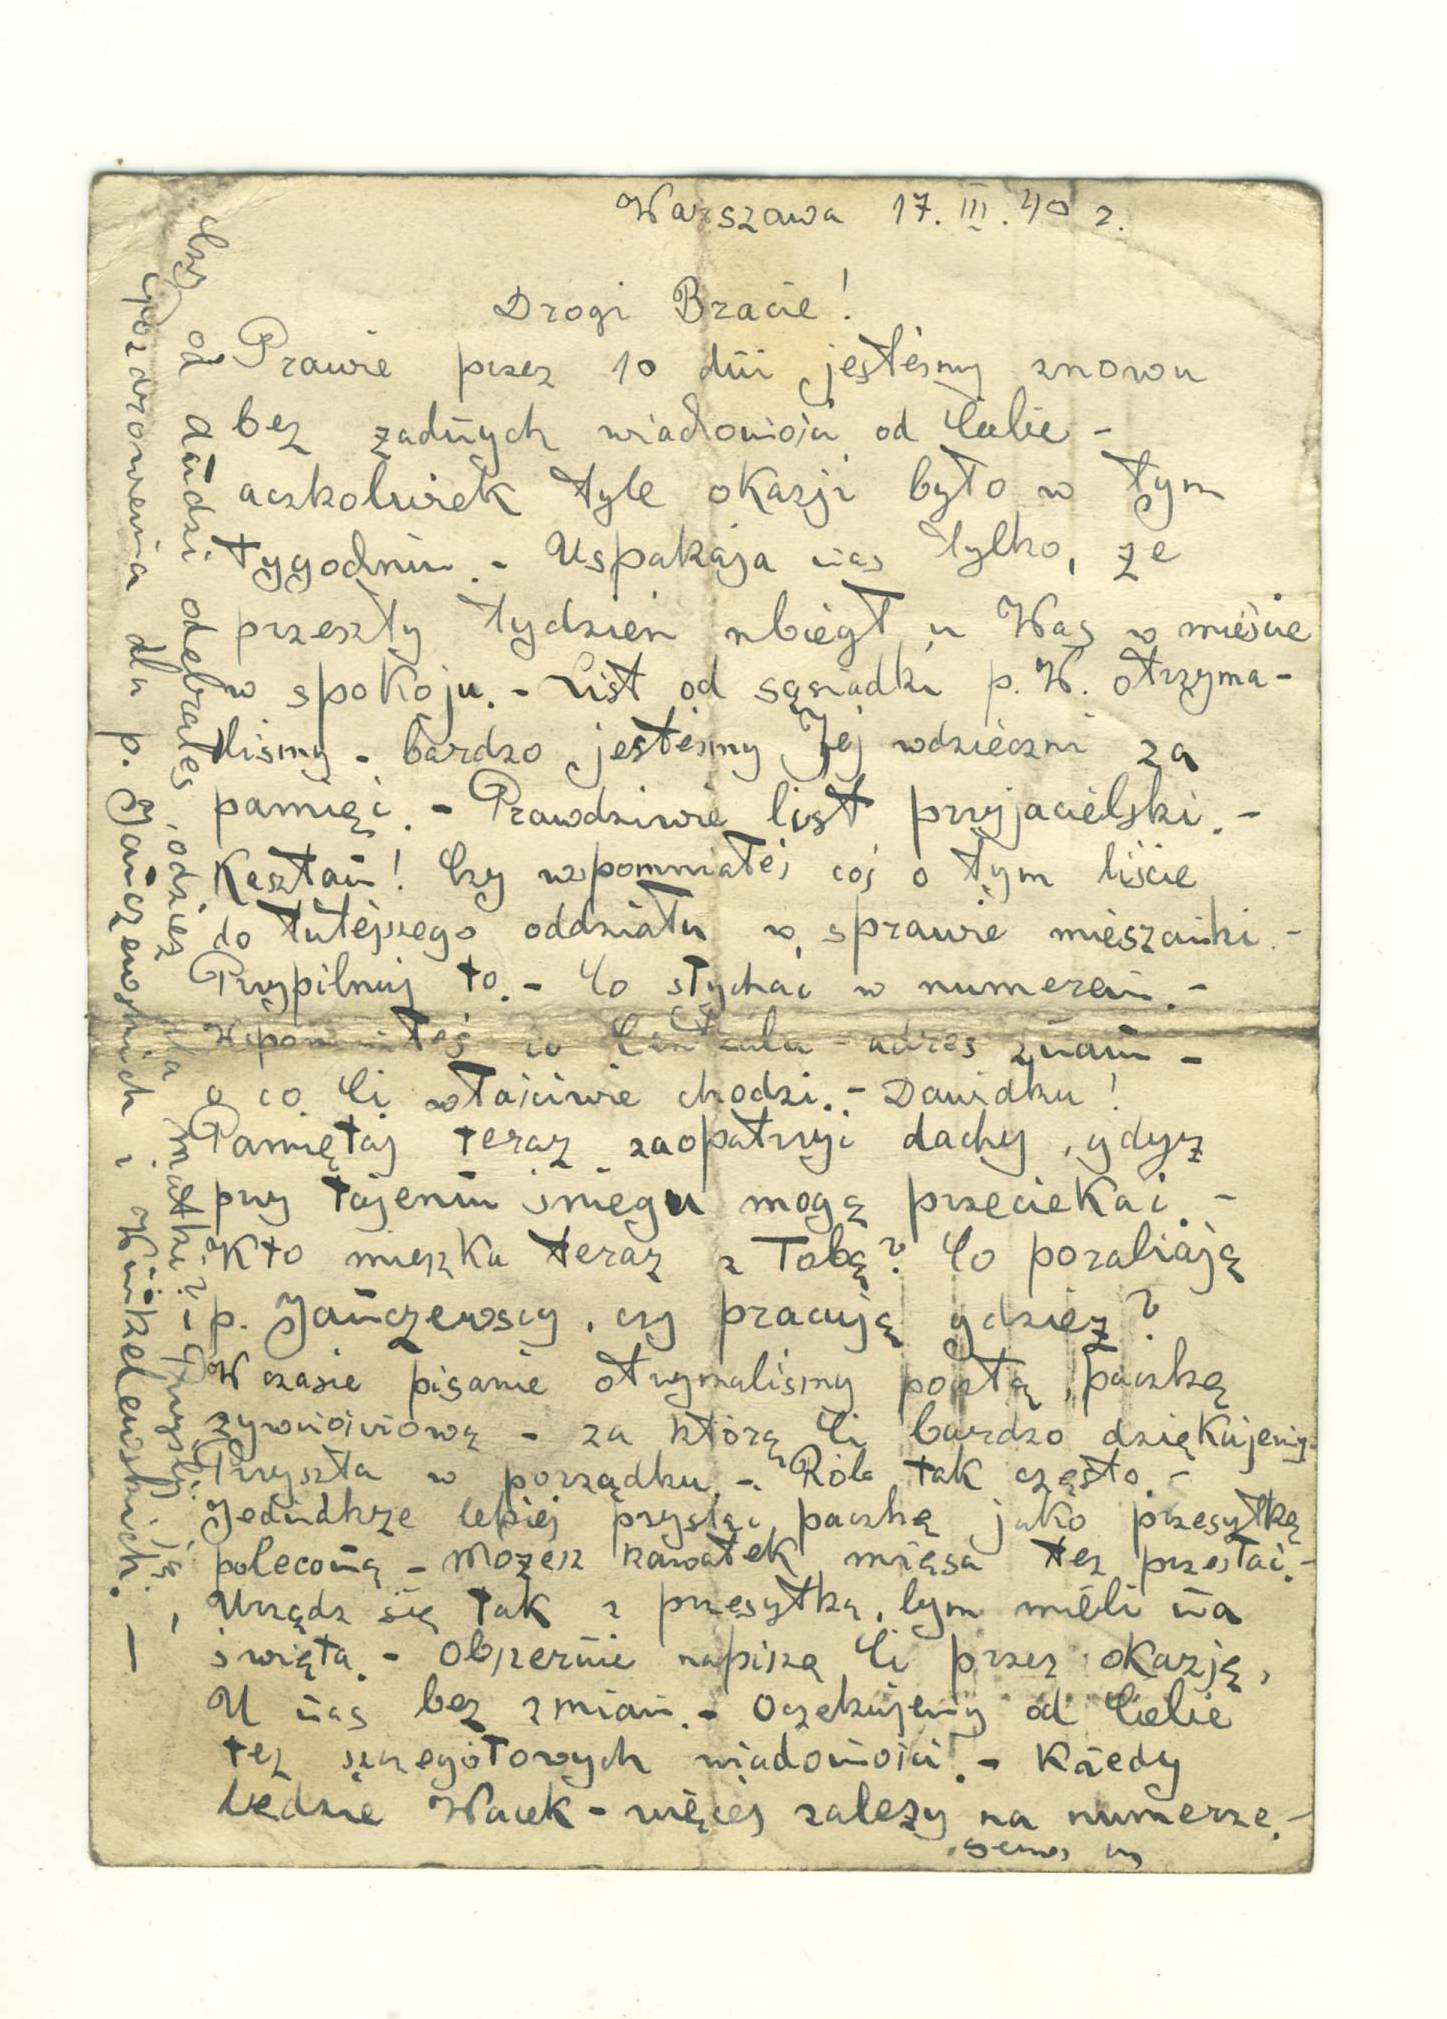 Warszawa 17.III.40 r.
Drogi Bracie!
Prawie przez 10 dni jesteśmy znowu
bez żadnych wiadomości od Ciebie -
aczkolwiek tyle okazji było w tym
tygodniu. - Uspakaja nas tylko, że
przeszły tydzień ubiegł u Was w mieście
w spokoju. - List od sąsiadki p. W. otrzyma-
liśmy - bardzo jesteśmy Jej wdzięczni za
pamięć. - Prawdziwie list przyjacielski. -
Kasztan! Czy wspomniałeś coś o tym liście
do tutejszego oddziału w sprawie mieszanki. -
Przypilnuj to. - Co słychać w numerem. -
Wspomniałeś co Centrala - adres znam -
o co Ci właściwie chodzi. - Dawidku!
Pamiętaj teraz zaopatrzyć dachy, gdyż
przy tajeniu śniegu mogą przeciekać. -
Kto mieszka teraz z Tobą? Co porabiają
p. Jańczewscy, czy pracują gdzieś?
W czasie pisanie otrzymaliśmy pocztą paczkę
żywnościową - za którą Ci bardzo dziękujemy
Przyszła w porządku. - Rób tak często. -
Jednakże lepiej przysłać paczkę jako przesyłkę
poleconą - możesz kawałek mięsa też przesłać. -
Urządź się tak z przesyłką, bym mieli na
święta. - Obszernie napiszę Ci przez okazję,
U nas bez zmian. - Oczekujemy od Ciebie
też szczegółowych wiadomości. - Kiedy
będzie Wacek - więcej zależy na numerze. -
Czy od Dadzi odebrałeś odzież dla matki? - Przyślij ją. -
Pozdrowienia dla p. Jańczewskich i Winkelewskich. -